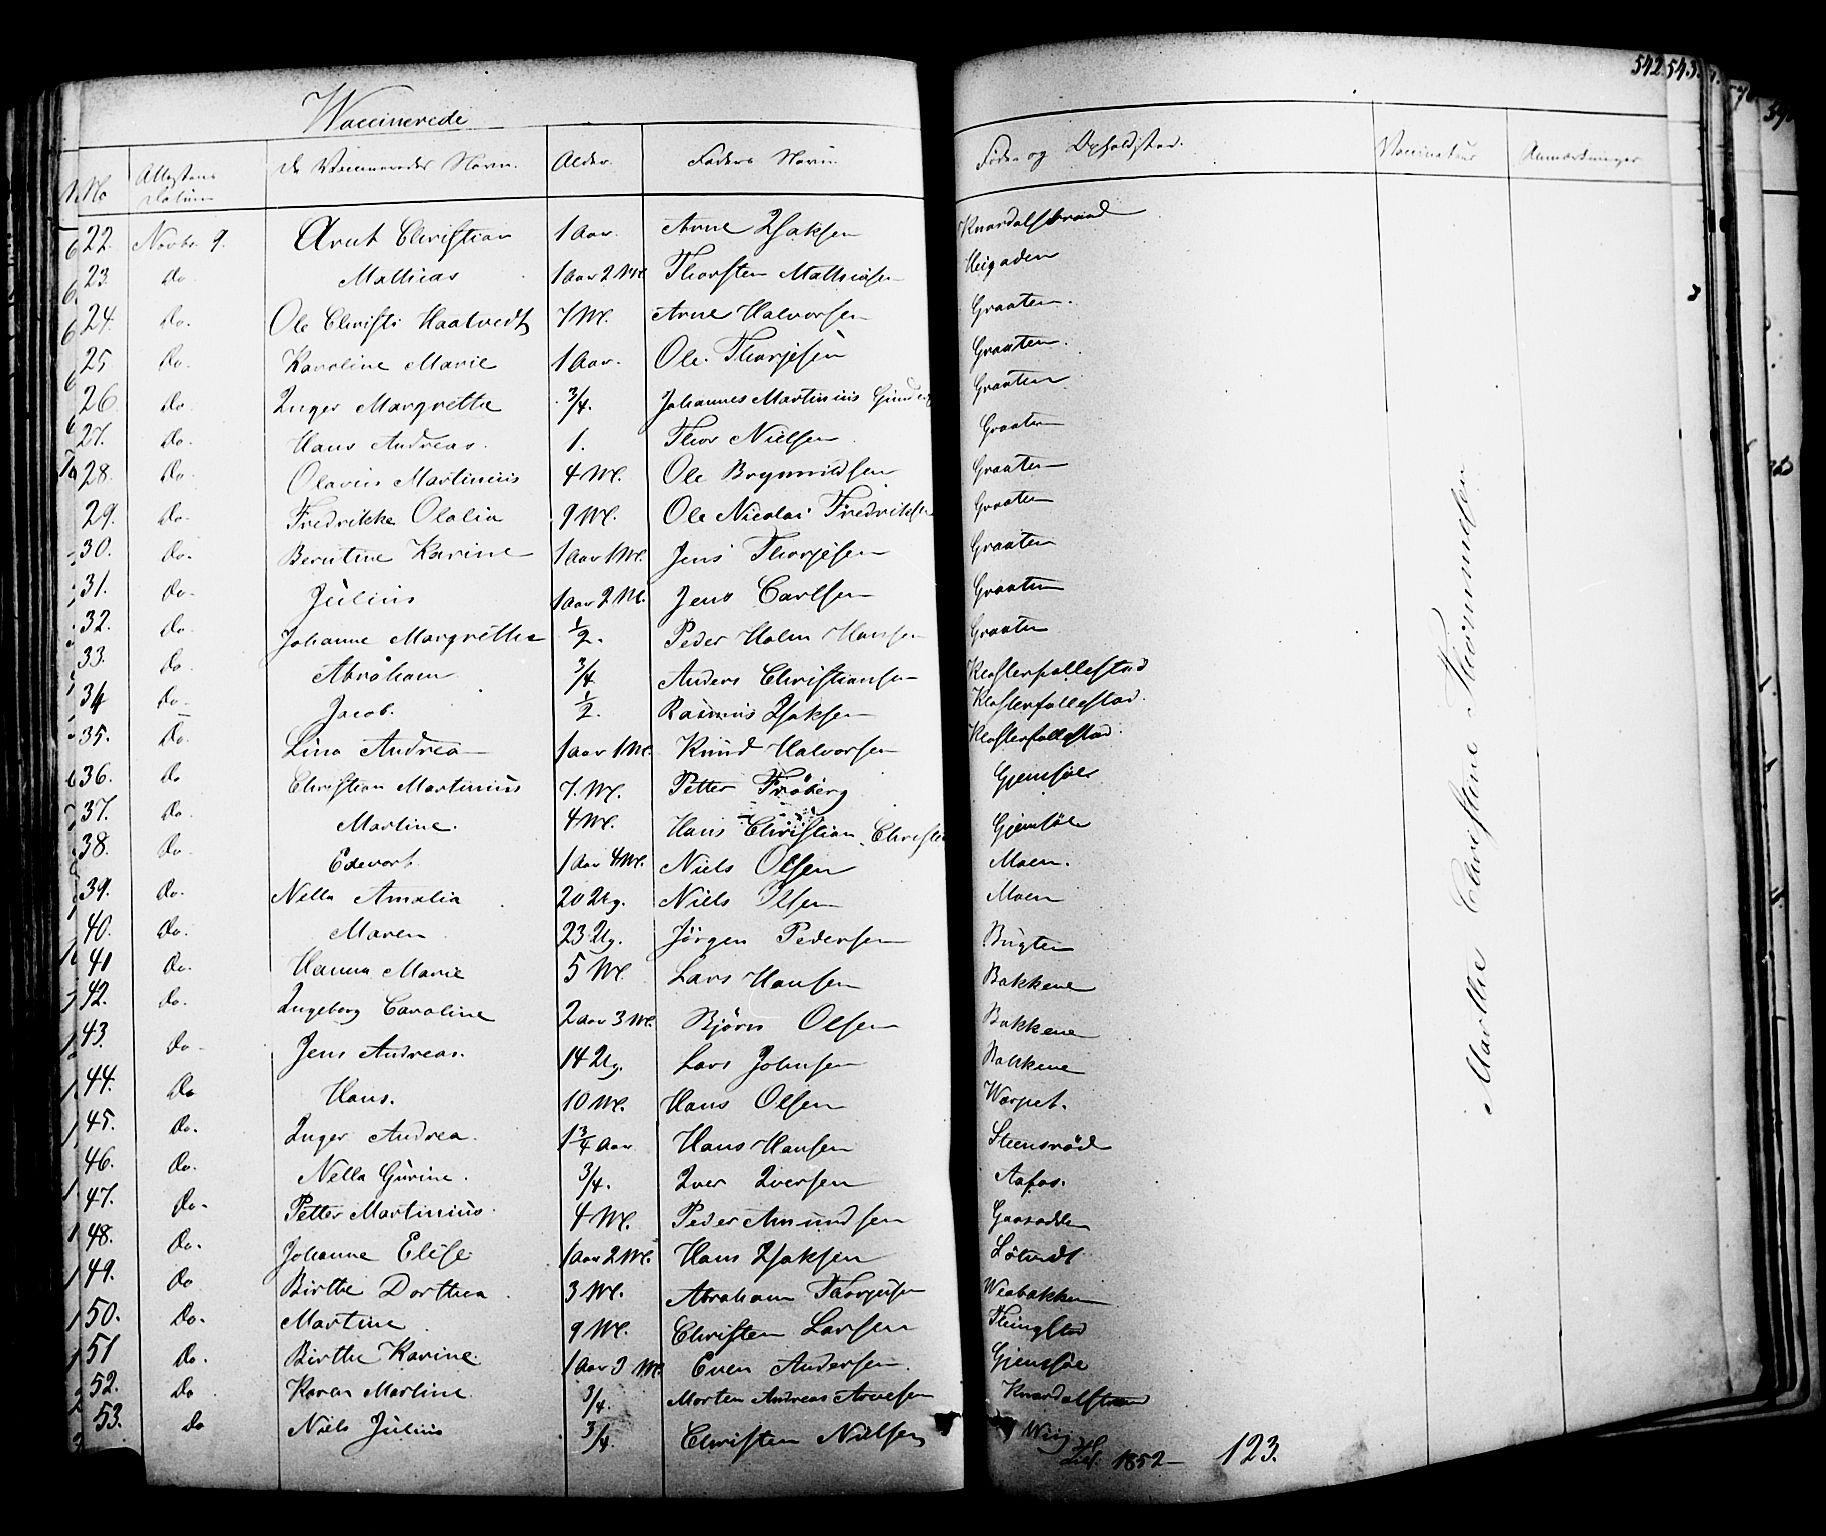 Waccinerede
542 543.
No Attestens Datum De Vaccineredes Navn. Alder. Faders Navn Føde og Opholdsted. Vaccinateur Anmærkninger
22. Novbr. 9. Arnt Christian 1 Aar. Arne Isaksen Knardalsstrand
23. Do. Mathias 1 Aar 2 M. Thorsten Mathisen Heigaden
24. Do. Ole Christi Haatvedt 7 M. Arne Halvorsen Graaten.
25 Do. Karoline Marie 1 Aar. Ole Thorjesen Graaten.
26 Do. Inger Margrethe 3/4. Johannes Martinius Graaten
27. Do. Hans Andreas. 1. Thor Nielsen Graaten
28. Do. Olavus Martinius 4 M. Ole Brynnildsen Graaten
29. Do. Fredrikke Olalia 9 M. Ole Nicolai Fredriksen Graaten
30. Do. Berntine Karine 1 Aar 1 M. Jens Thorjesen Graaten
31. Do. Julius 1 Aar 2 M. Jens Carlsen Graaten
32. Do. Johanne Margrethe 1/2. Peder Holm Hansen Graaten
33. Do. Abraham 3/4 Anders Christiansen Klosterfollestad
34 Do. Jacob. 1/2. Rasmus Isaksen Klosterfollestad.
35. Do. Lina Andrea 1 Aar 1 M. Knud Halvorsen Klosterfollestad.
36. Do Christian Martinius 7. M. Petter Frøberg Gjemsøe
37. Do. Martine. 4 M. Hans Christian Gjemsøe
38. Do. Edevart 1 Aar 4 M. Niels Olsen Moen.
39. Do. Nella Amalia 20 Ug. Niels Olsen Moen
40. Do. Maren 23 Ug. Jørgen Pedersen Bugten
41 Do. Hanna Marie 5 M. Lars Hansen Bakkene
42. Do. Ingeborg Caroline 2 Aar 3 M. Bjørn Olsen Bakkene
43. Do. Jens Andreas. 14 Ug. Lars Johnsen Bakkene
44. Do Hans. 10 M. Hans Olsen Warpet.
45. Do. Inger Andrea. 1 3/4 Aar Hans Hansen Steensrød
46. Do. Nella Gurine. 3/4. Iver Iversen Aafos.
47. Do. Petter Martinius. 4 M. Peder Amundsen
48. Do. Johanne Elise 1 Aar 2 M. Hans Isaksen
49. Do Birthe Dorthea 3 M. Abraham Thorjusen
50. Do. Martine 9 M. Christen Larsen
51 Do. Birthe Karine. 1 Aar 3 M. Even Andersen. Gjemsøe
52. Do Karen Martine 3/4. Morten Andreas Arnesen Knardalstrand
53. Do Niels Julius 3/4 Christen Nielsen
1852 123.
Marthe Christine Thommesen